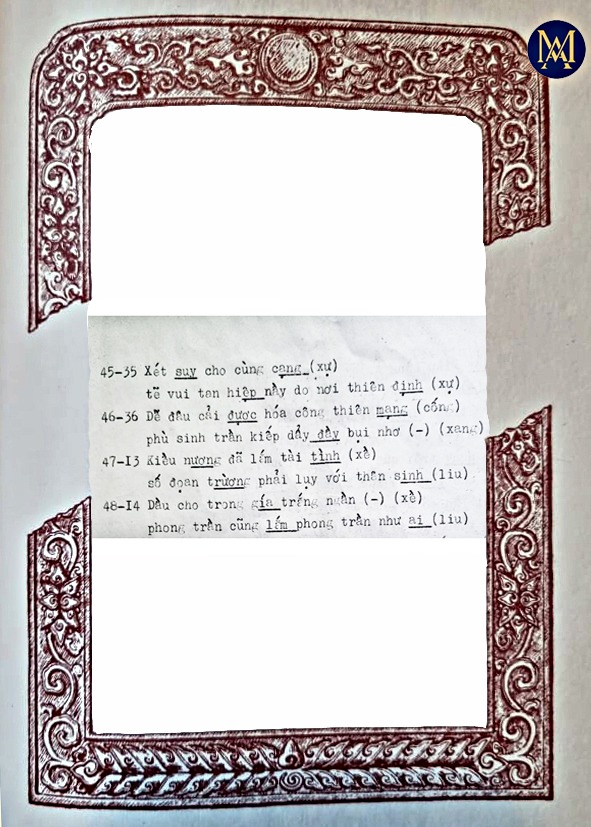 MA
45-35 Xét suy cho cùng cạng (xự)
tề vui tan hiệp này do nơi thiên định (xự)
46-36 Dễ đâu cải được hóa công thiên mạng (cống)
phù sinh trần kiếp dẩy đầy bụi nhơ (-) (xang)
47-I3 Kiều nương đã lắm tài tình (xề)
số đoạn trường phải lụy với thân sinh (liu)
48-I4 Dầu cho trong gía trắng ngần (-) (xề)
phong trần cũng lắm phong trần như ai (liu)